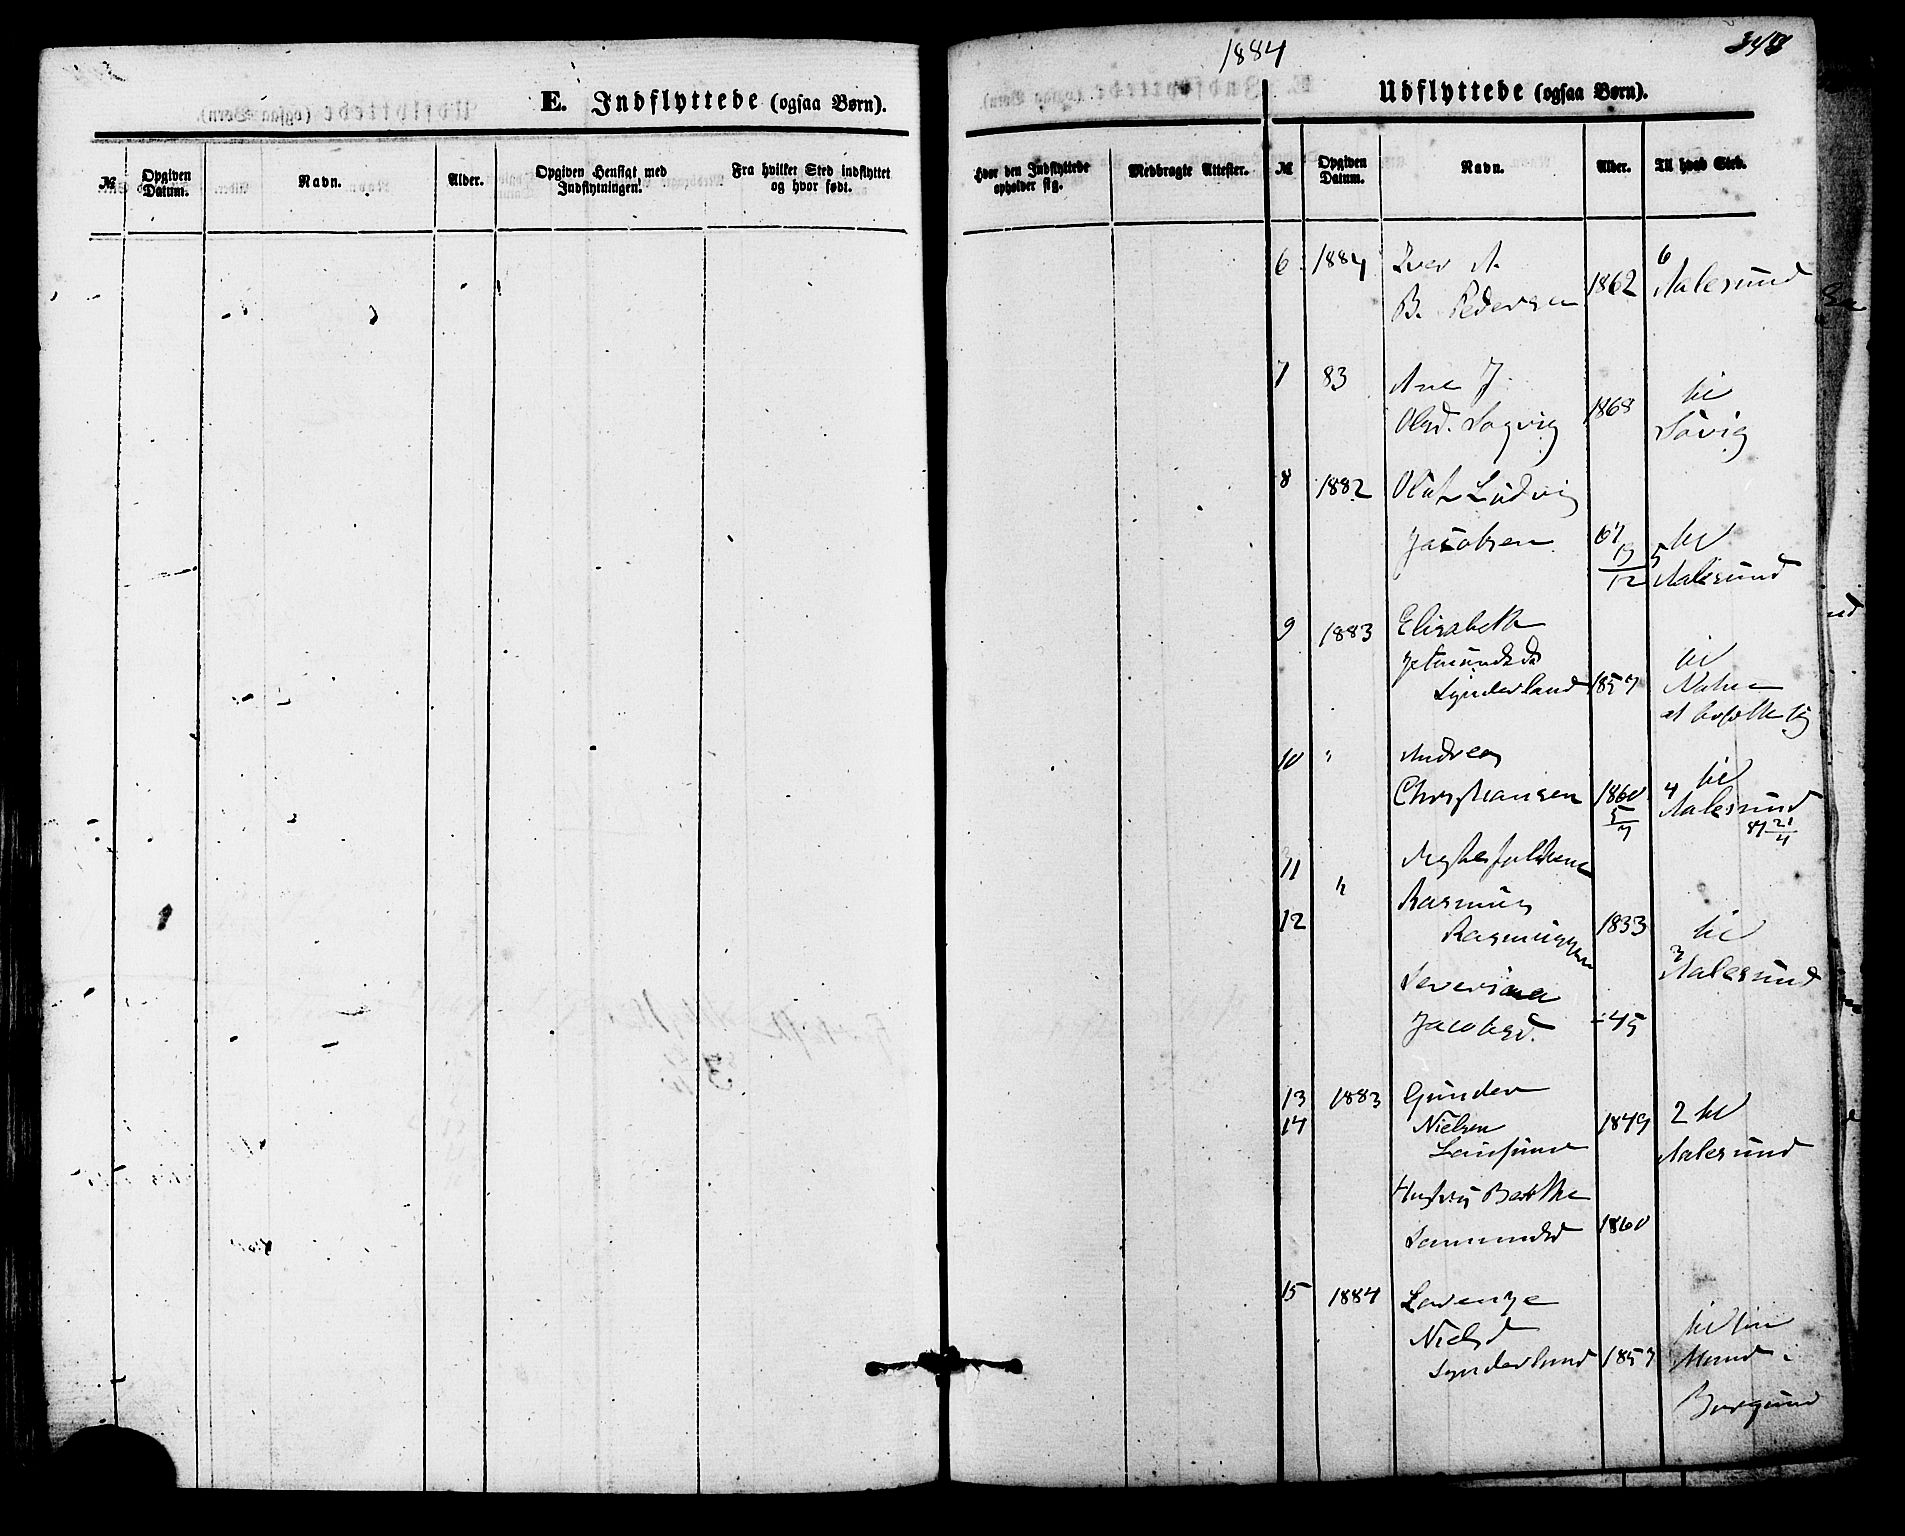 1884
348
E. Indflyttede (ogsaa Børn).
Udflyttede (ogsaa Børn).
№ Opgiven Datum. Navn. Alder. Opgiven Hensigt med Indflytningen. Fra hvilket Sted indflyttet og hvor født.
Hvor den Indflyttede opholder sig. Medbragte Attester. № Opgiven Datum. Navn. Alder. Til hvad Sted.
6 1884 Iver A.
B. Pedersen 1862 6 Aalesund
7 83 Ane J.
Olsd. Sogvig 1868 til
Søvig
8 1882 Olaf Ludvig
Jacobsen 67 til
12 5 Aalesund
9 1883 Elisabeth
til
Synderland 1857
10 " Andreas
Christiansen 1860 4 til
5/7 Aalesund
87 21/4
11 " Ægtefolkene
12 Rasmus
Rasmussen 1833 til
3 Aalesund
Severine
Jacobsd. - 45
13 1883 Gunder
14 Nielsen 1849 2 til
Aalesund
Hustru Berthe
1860
15 1884 Lorenze
Nielsd til sin
Synderland 1857 Mand i
Borgund